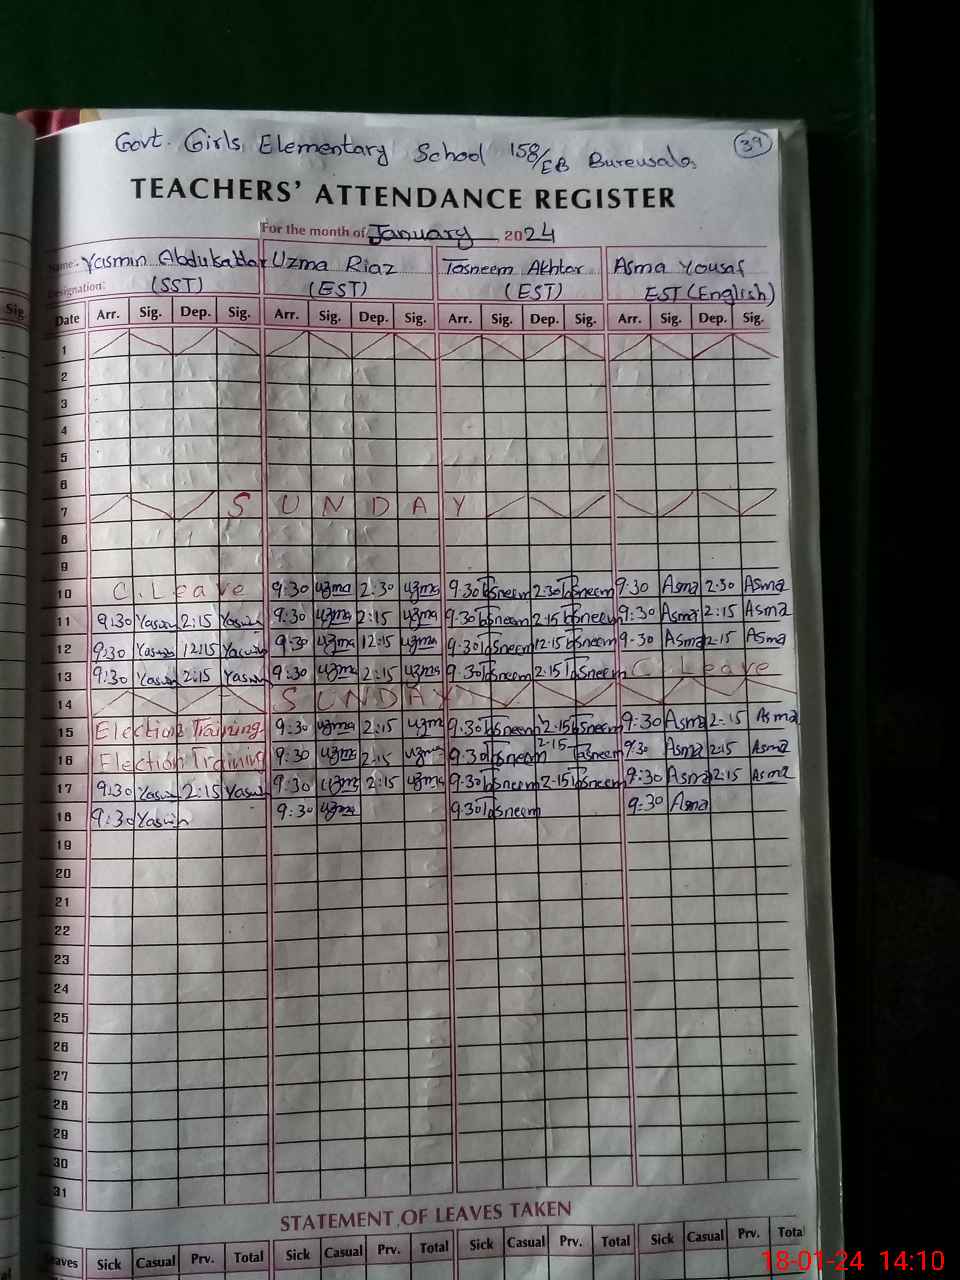 Govt. Girls Elementary School 158/EB Burewala. 39
TEACHERS' ATTENDANCE REGISTER
For the month of January, 2024
Name:- Yasmin Uzma Riaz Tasneem Akhtar Asma Yousaf
Designation: (SST) (EST) (EST) EST (English)
Sig. Date Arr. Sig. Dep. Sig. Arr. Sig. Dep. Sig. Arr. Sig. Dep. Sig. Arr. Sig. Dep. Sig.
1
2
3
4
5
6
7 SUNDAY
8
9
10 C. Leave 9:30 uzma 2:30 uzma 9.30 Tasneem 2:30 Tasneem 9:30 Asma 2:30 Asma
11 9:30 Yasmin 2:15 Yasmin 9:30 uzma 2:15 uzma 9.30 Tasneem 2.15 Tasneem 9:30 Asma 2:15 Asma
12 9:30 Yasmin 12:15 Yasmin 9:30 uzma 12:15 uzma 9.30 Tasneem 12.15 Tasneem 9.30 Asma 12.15 Asma
13 9:30 Yasmin 2:15 Yasmin 9:30 uzma 2:15 uzma 9.30 Tasneem 2.15 Tasneem C. Leave
14 SUNDAY
15 Election Training 9:30 uzma 2:15 uzma 9.30 Tasneem 2.15 Tasneem 9:30 Asma 2:15 Asma
16 Election Training 9:30 uzma 2:15 uzma 9.30 Tasneem 2.15 Tasneem 9:30 Asma 2:15 Asma
17 9:30 Yasmin 2:15 Yasmin 9:30 uzma 2:15 uzma 9.30 Tasneem 2.15 Tasneem 9:30 Asma 2:15 Asma
18 9:30 Yasmin 9:30 uzma 9.30 Tasneem 9:30 Asma
19
20
21
22
23
24
25
26
27
28
29
30
31
STATEMENT OF LEAVES TAKEN
eaves Sick Casual Prv. Total Sick Casual Prv. Total Sick Casual Prv. Total Sick Casual Prv. Total
18-01-24 14:10